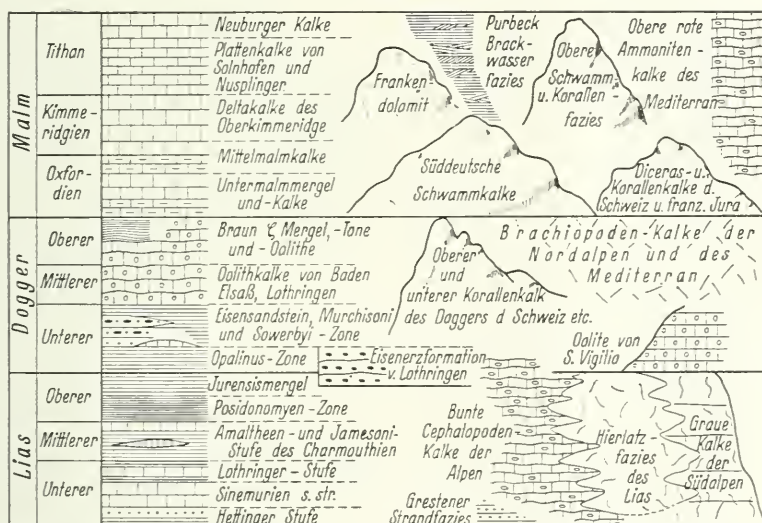 Malm
Tithon
Kimme-
ridgien
Oxfor-
dien
Neuburger Kalke
Plattenkalke von
Solnhofen und
Nusplinger
Deltakalke des
Oberkimmeridge
Mittelmalmkalke
Untermalmmergel
und-Kalke
Franken-
dolomit
Purbeck
Brack-
wasser
fazies
Obere
Schwamm-
u. Korallen-
fazies
Obere rote
Ammoniten-
kalke des
Mediterran
Süddeutsche
Schwammkalke
Diceras- u.
Korallenkalke d.
Schweiz u. franz. Jura
Dogger
Oberer
Mittlerer
Unterer
Braun ζ Mergel,-Tone
und - Oolithe
Oolithkalke von Baden
Elsaß, Lothringen
Eisensandstein, Murchisoni
und Sowerbyi - Zone
Opalinus - Zone
Oberer
und
unterer Korallenkalk
des Doggers d Schweiz etc.
Brachiopoden-Kalke der
Nordalpen und des
Mediterran
Oolite von
S. Vigilio
Eisenerzformation
v. Lothringen
Lias
Oberer
Mittlerer
Unterer
Jurensismergel
Posidonomyen - Zone
Amaltheen - und Jamesoni-
Stufe des Charmouthien
Lothringer - Stufe
Sinemurien s. str.
Hettinger Stufe
Bunte
Cephalopoden-
Kalke der
Alpen
Grestener
Strandfazies
Hierlatz-
fazies
des
Lias
Graue
Kalke
der
Südalpen